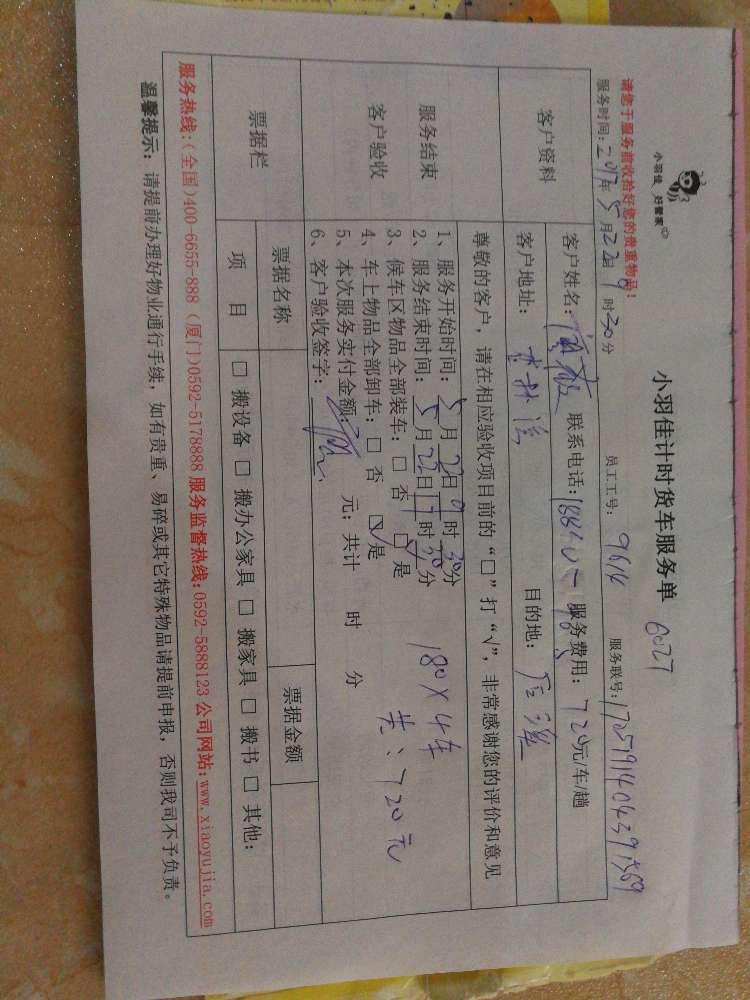 小羽佳 好管家
小羽佳计时货车服务单 6027
请您于服务前收拾好您的贵重物品！
员工工号： 9614 服务联号：
服务时间：2017年5月22日9时30分
客户资料
客户姓名： 联系电话： 服务费用：720元/车/趟
客户地址： 目的地：
尊敬的客户，请在相应验收项目前的“□”打“√”，非常感谢您的评价和意见
服务结束
客户验收
1、服务开始时间：5月22日9时30分
2、服务结束时间：5月22日17时30分
3、候车区物品全部装车：□ 否 ☑ 是
4、车上物品全部卸车：□ 否 ☑ 是
5、本次服务实付金额： 元；共计 时 分
6、客户验收签字：
180×4车
共：720元
票据栏
票据名称 票据金额
项 目 □ 搬设备 □ 搬办公家具 □ 搬家具 □ 搬书 □ 其他：
服务热线：（全国）400-6655-888（厦门）0592-5178888 服务监督热线：0592-5888123 公司网站：www.xiaoyujia.com
温馨提示：请提前办理好物业通行手续，如有贵重、易碎或其它特殊物品请提前申报，否则我司不予负责。